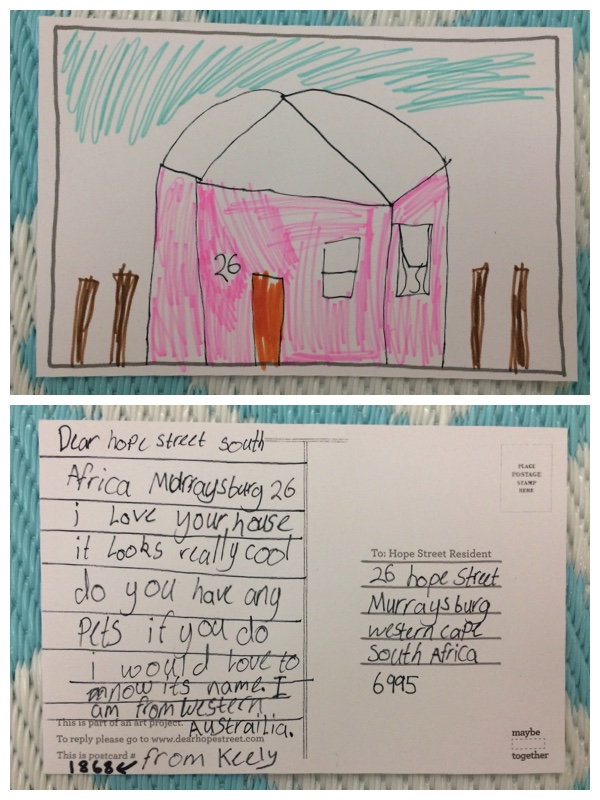 26
Dear hope street south
Africa Murraysburg 26
i Love your house
it Looks really cool
do you have any
Pets if you do
i would Love to
know its name. I
am from western
Austrailia.
This is part of an art project.
To reply please go to www.dearhopestreet.com
This is postcard #
1868
from Keely
PLACE
POSTAGE
STAMP
HERE
To: Hope Street Resident
26 hope Street
Murraysburg
western cape
South Africa
6995
maybe
together